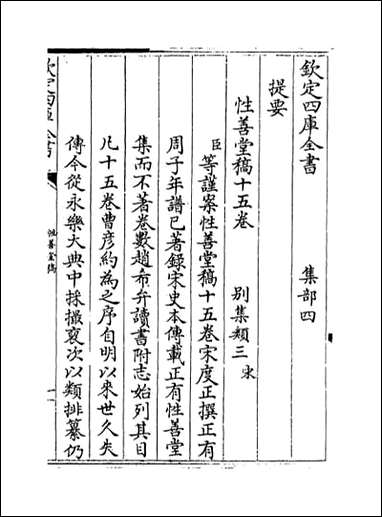 欽定四庫全書　集部四
提要
性善堂稿十五卷　别集類三 宋
臣等謹案性善堂稿十五卷宋度正撰正有
周子年譜已著録宋史本傳載正有性善堂
集而不著卷數趙希弁讀書附志始列其目
凡十五卷曹彦約為之序自明以來世久失
傳今從永樂大典中採撮裒次以類排纂仍
欽定四庫全書
性善堂稿